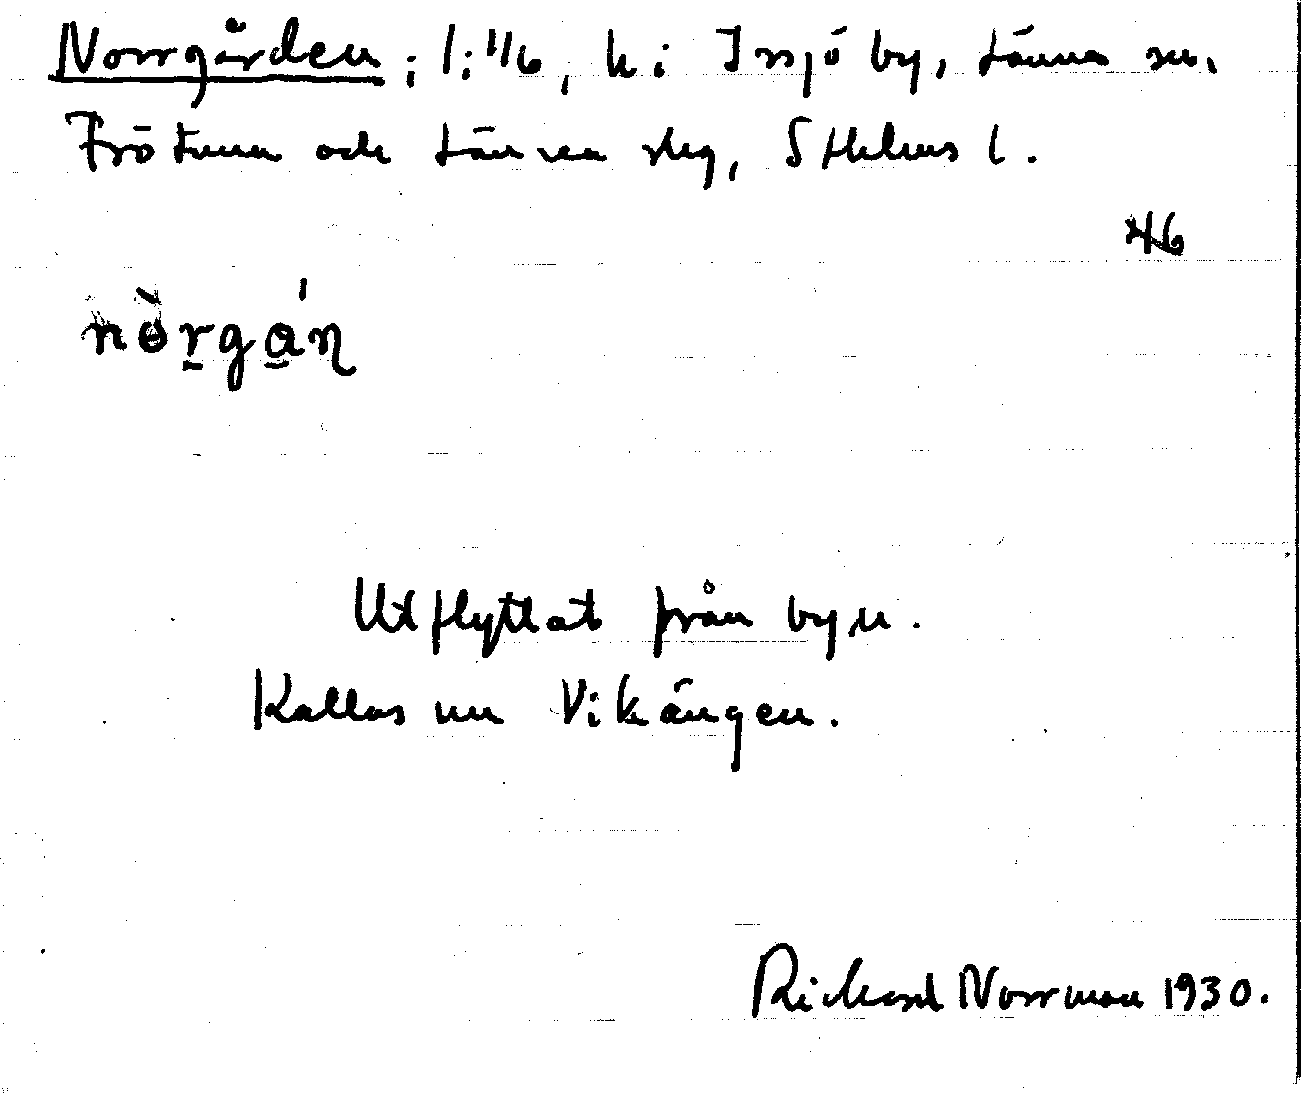 Norrgården; 1:11/6, h. i Issjö by, Länna sn.
Frötuna och Länna skg, Sthlms l.
46
nòrgán
Utflyttat från byn.
Kallas nu Vikängen.
Rickard Norrman 1930.